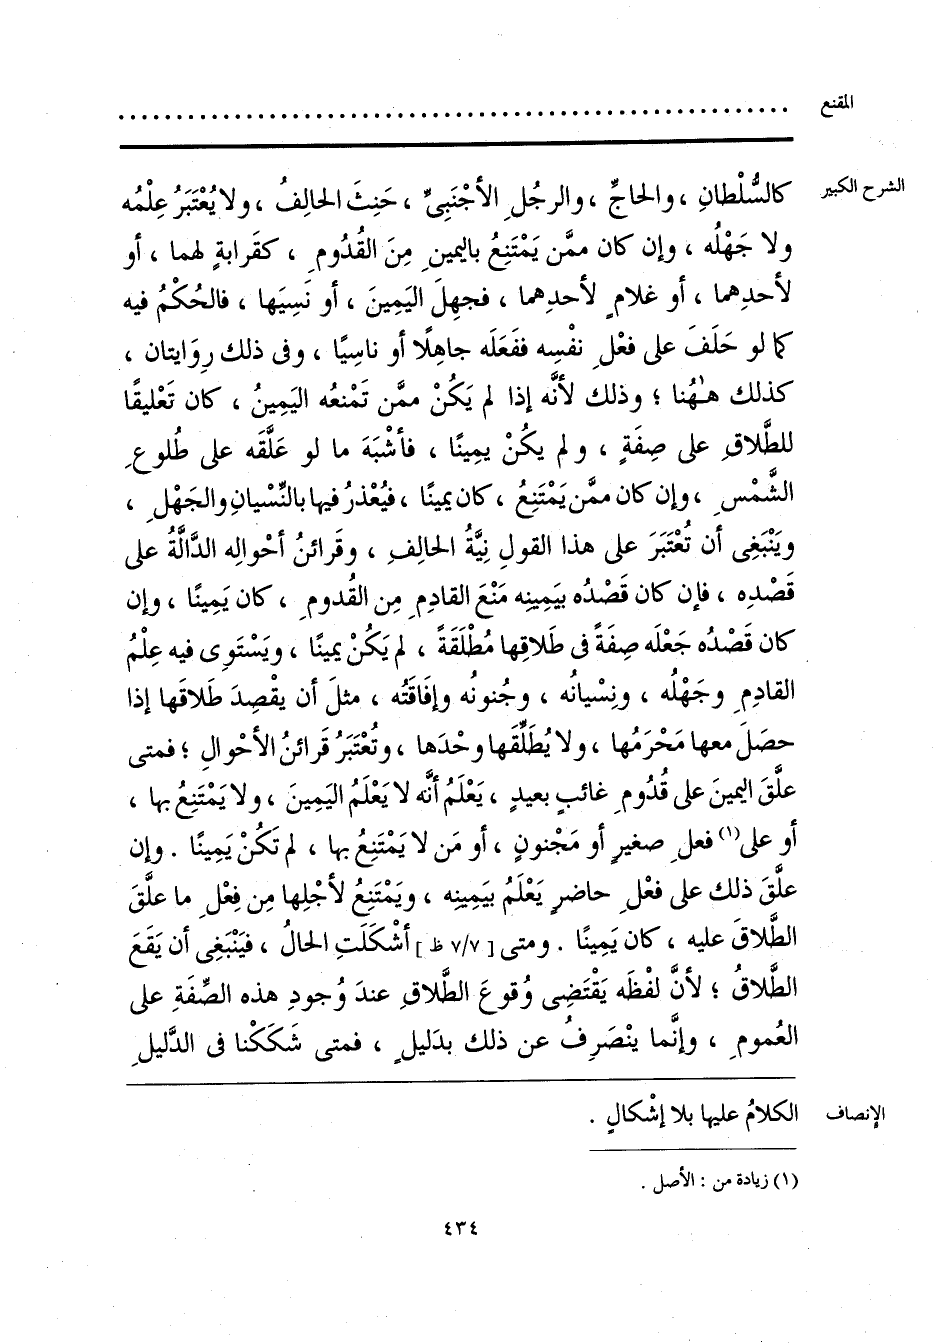 المقنع ......................................................................
الشرح الكبير كالسُّلْطانِ ، والحاجِّ ، والرجُلِ الأجْنَبِىِّ ، حَنِثَ الحالِفُ ، ولا يُعْتَبَرُ عِلْمُه
ولا جَهْلُه ، وإن كان ممَّن يَمْتَنِعُ باليمينِ مِنَ القُدُومِ ، كقَرابةٍ لهما ، أو
لأحدِهما ، أو غلامٍ لأحدِهما ، فجهِلَ اليَمِينَ ، أو نَسِيَها ، فالحُكْمُ فيه
كما لو حَلَفَ على فعْلِ نفْسِه ففَعَلَه جاهِلًا أو ناسِيًا ، وفى ذلك رِوَايتان ،
كذلك هٰهُنا ؛ وذلك لأنَّه إذا لم يَكُنْ ممَّن تَمْنعُه اليَمِينُ ، كان تَعْليقًا
للطَّلاقِ على صِفَةٍ ، ولم يكُنْ يمِينًا ، فأشْبَهَ ما لو عَلَّقَه على طُلوعِ
الشَّمْسِ ، وإن كان ممَّن يَمْتَنِعُ ، كان يمينًا ، فيُعْذرُ فيها بالنِّسْيانِ والجَهْلِ ،
ويَنْبَغِى أن تُعْتَبَرَ على هذا القولِ نِيَّةُ الحالِفِ ، وقَرائنُ أحْوالِه الدَّالَّةُ على
قَصْدِه ، فإن كان قَصْدُه بيَمِينِه مَنْعَ القادِمِ مِن القُدومِ ، كان يَمِينًا ، وإن
كان قَصْدُه جَعْلَه صِفَةً فى طَلاقِها مُطْلَقَةً ، لم يَكُنْ يمِينًا ، ويَسْتَوِى فيه عِلْمُ
القادِمِ وجَهْلُه ، ونِسْيانُه ، وجُنونُه وإفَاقَتُه ، مثلَ أن يقْصِدَ طَلاقَها إذا
حصَلَ معها مَحْرَمُها ، ولا يُطَلِّقَها وحْدَها ، وتُعْتَبَرُ قَرائنُ الأحْوالِ ؛ فمتى
علَّقَ اليمينَ على قُدُومِ غائبٍ بعيدٍ ، يَعْلَمُ أنَّه لا يَعْلَمُ اليَمِينَ ، ولا يَمْتَنِعُ بها ،
أو على(١) فعلِ صغيرٍ أو مَجْنونٍ ، أو مَن لا يَمْتَنِعُ بها ، لم تَكُنْ يَمِينًا . وإن
علَّقَ ذلك على فعْلِ حاضرٍ يَعْلَمُ بيَمِينِه ، ويَمْتَنِعُ لأجْلِها مِن فِعْلِ ما علَّقَ
الطَّلاقَ عليه ، كان يَمِينًا . ومتى [ ٧/٧ ظ ] أشْكَلَتِ الحالُ ، فيَنْبَغِى أن يَقَعَ
الطَّلاقُ ؛ لأنَّ لفْظَه يَقْتَضِى وُقوعَ الطَّلاقِ عندَ وُجودِ هذه الصِّفَةِ على
العُمومِ ، وإنَّما ينْصَرِفُ عن ذلك بدَليلٍ ، فمتى شَكَكْنا فى الدَّليلِ
الإنصاف الكلامُ عليها بلا إشْكالٍ .
(١) زيادة من : الأصل .
٤٣٤